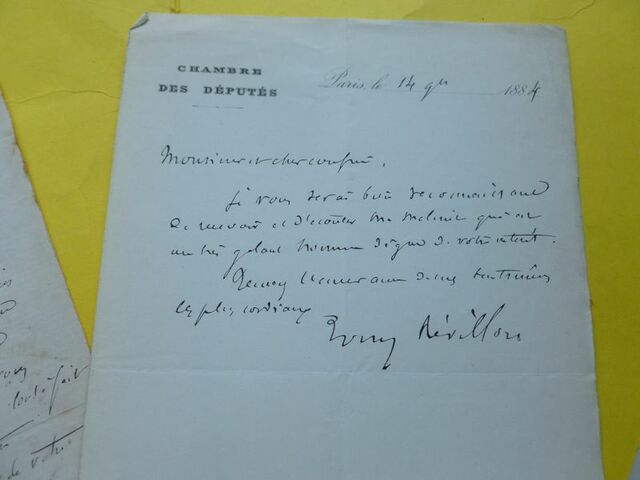 CHAMBRE
DES DÉPUTÉS
Paris, le 14 9bre 1884
Monsieur et cher confrère,
Je vous serai bien reconnaissant
de recevoir et d'écouter M. qui est
un très galant homme digne de votre intérêt.
l'assurance de mes sentiments
les plus cordiaux
Tony Révillon
tout à fait
de votre